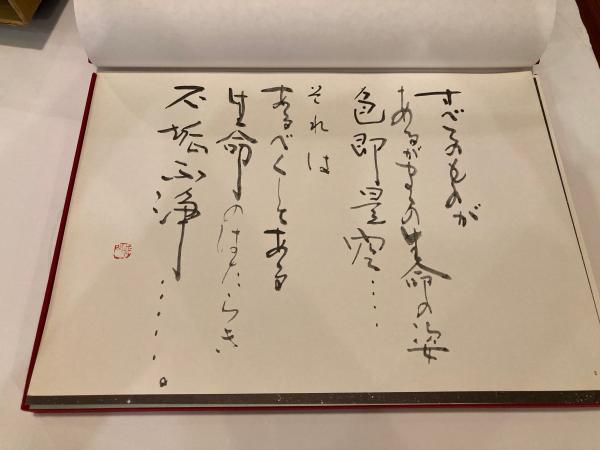 すべてのものが
あるがままの生命の姿
色即是空……
それは
あるべくしてある
生命のはたらき
不垢不浄……。